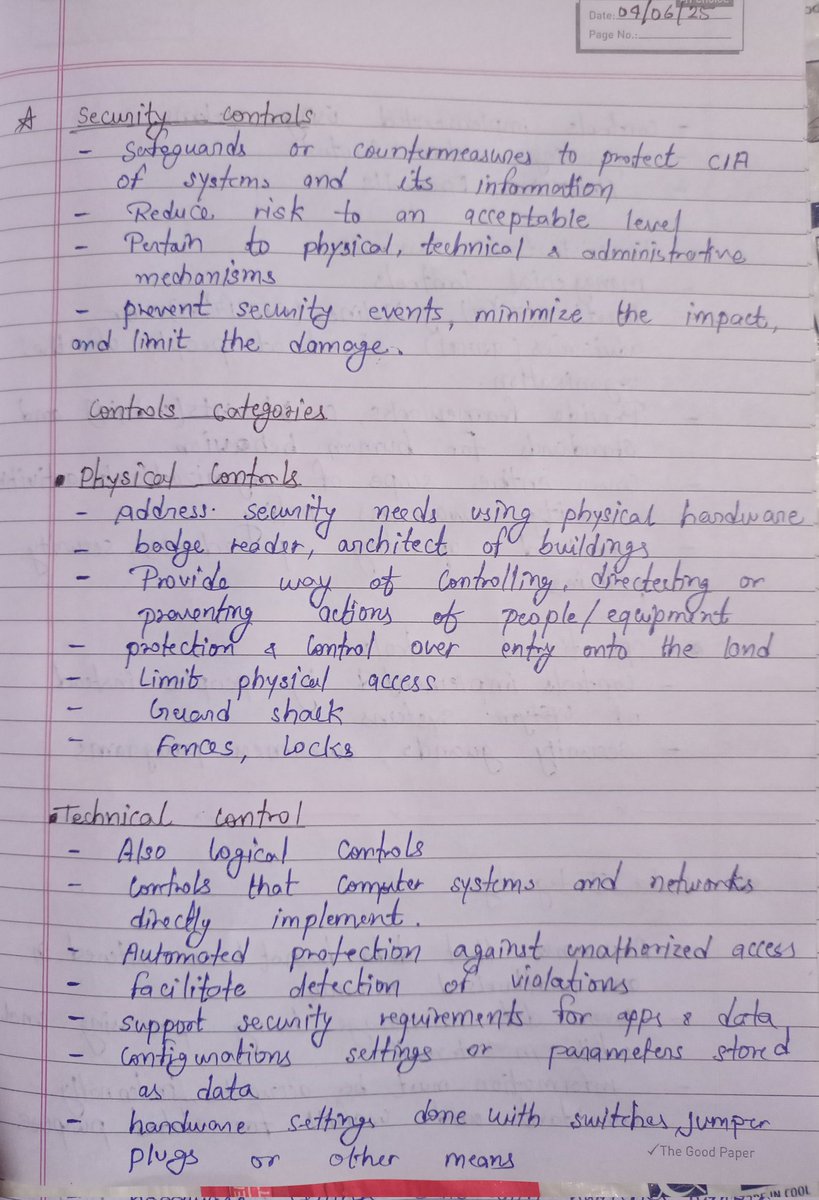 Date: 04/06/25
Page No.:
☆ Security controls
- Safeguards or countermeasures to protect CIA
of systems and its information
- Reduce risk to an acceptable level
- Pertain to physical, technical & administrative
mechanisms
- prevent security events, minimize the impact,
and limit the damage.
Controls categories
• Physical Controls
- Address. security needs using physical hardware
- badge reader, architect of buildings
- Provide way of controlling, directecting or
preventing actions of people/equipment
- protection & control over entry onto the land
- Limit physical access
- Guard shack
- Fences, Locks
• Technical control
- Also logical controls
- Controls that computer systems and networks
directly implement.
- Automated protection against unathorized access
- facilitate detection of violations
- support security requirements for apps & data
- Configurations settings or parameters stored
as data
- hardware settings done with switches, jumper
plugs or other means
✓The Good Paper
IN COOL